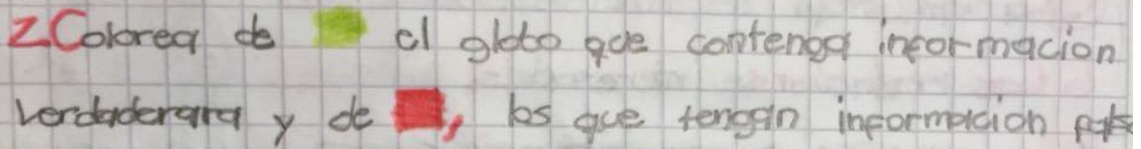 2 Colorea de el globo que contenga informacion
verdaderara y de , los que tengan informacion